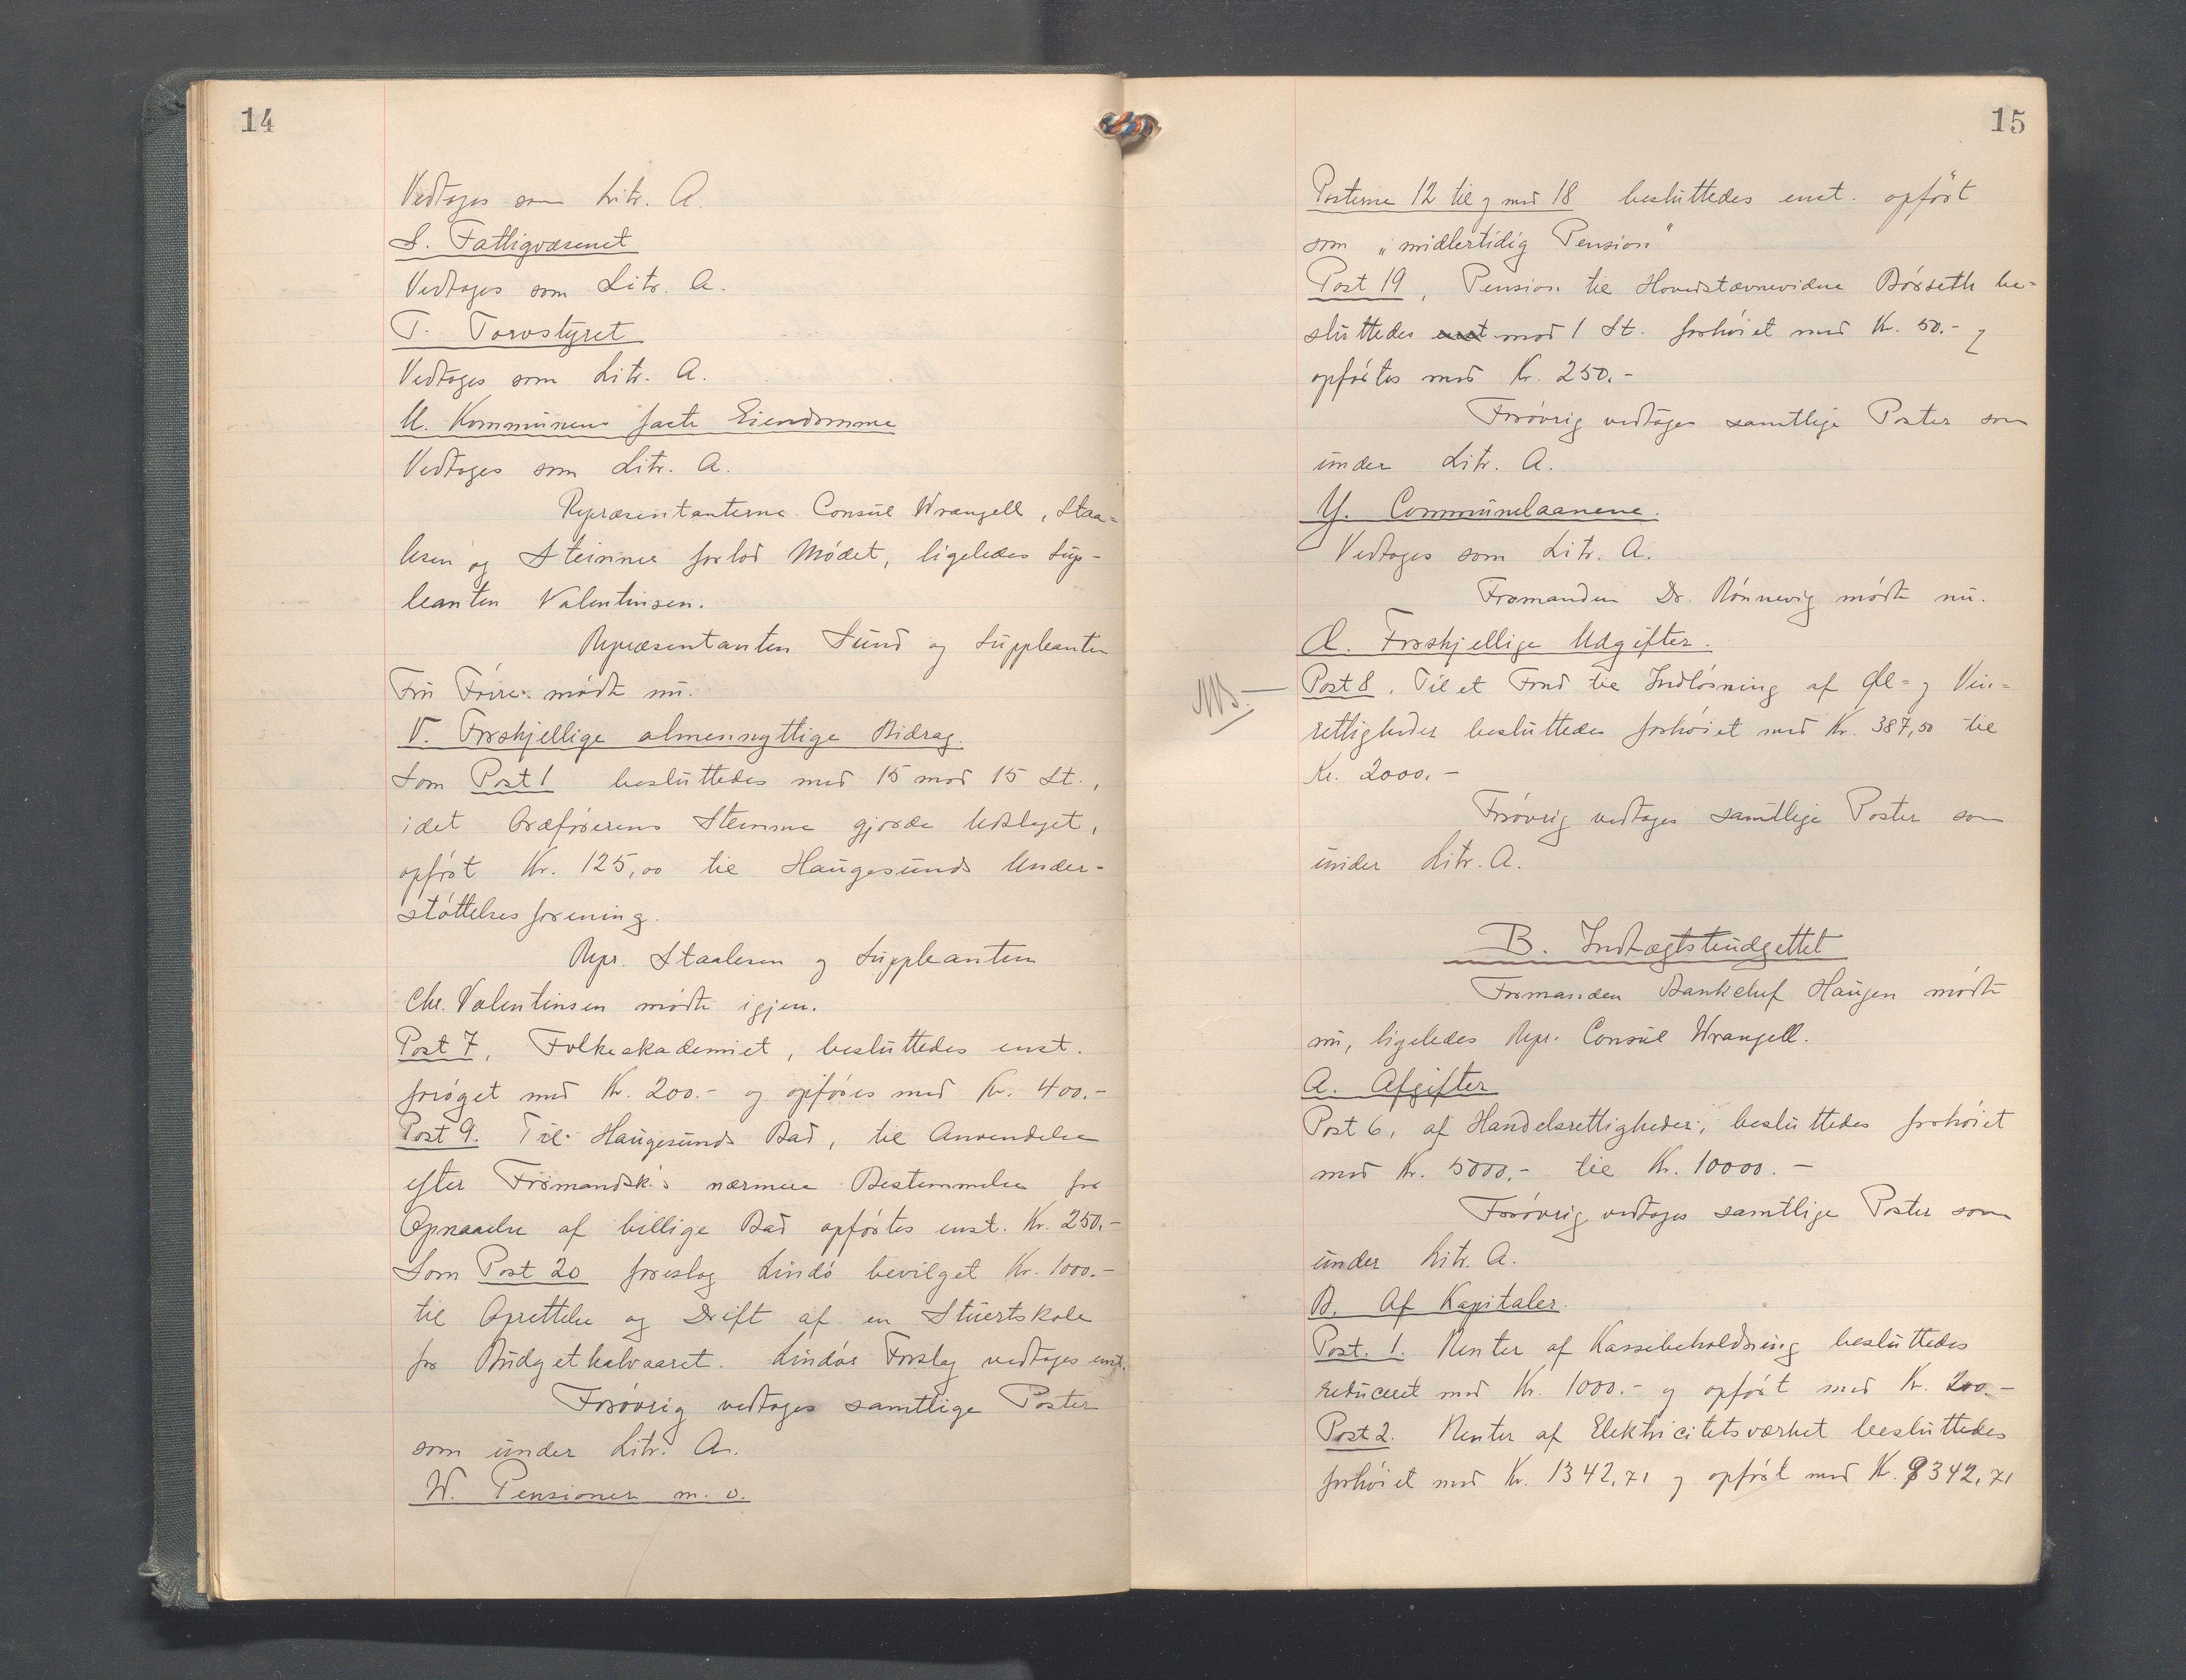 14
Vedtoges som Litr. A.
S. Fattigvæsenet
Vedtoges som Litr. A.
T. Torvstyret
Vedtoges som Litr. A.
U. Kommunens faste Eiendomme
Vedtoges som Litr. A.
Repræsentanterne Consul Wrangell, Staa-
lesen og Steinnes forlod Mödet, ligeledes Sup-
leanten Valentinsen.
Repræsentanten Sund og Suppleanten
Fru mödte nu.
V. Forskjellige almennyttige Bidrag.
Som Post 1 besluttedes med 15 mod 15 St.,
idet Ordförerens Stemme gjorde Udslaget,
opfört Kr. 125,00 til Haugesunds Under-
stöttelsesforening.
Repr. Staalesen og Suppleanten
Chr. Valentinsen mödte igjen.
Post 7, Folkeakademiet, besluttedes enst.
foröget med Kr. 200.- og opföres med Kr. 400.-
Post 9. Til Haugesunds Bad, til Anvendelse
efter Formandsk.s nærmere Bestemmelse for
Opnaaelse af billige Bad opförtes enst. Kr. 250.-
Som Post 20 foreslog Lindö bevilget Kr. 1000.-
til Oprettelse og Drift af en Stuertskole
for Budgethalvaaret. Lindös Forslag vedtoges enst.
Forövrig vedtoges samtlige Poster
som under Litr. A.
W. Pensioner m. v.
15
Posterne 12 til og med 18 besluttedes enst. opfört
som „midlertidig Pension"
Post 19, Pension til Hovedstævnevidne Børseth be-
sluttedes enst mod 1 St. forhöiet med Kr. 50.- og
opförtes med Kr. 250.-
Forövrig vedtoges samtlige Poster som
under Litr. A.
Y. Communelaanene.
Vedtoges som Litr. A.
Formanden Dr. Rönnevig mödte nu.
Æ. Forskjellige Udgifter.
NB. — Post 8. Til et Fond til Indlösning af Øl- og Vin-
rettigheder besluttedes forhöiet med Kr. 387,50 til
Kr. 2000.-
Forövrig vedtoges samtlige Poster som
under Litr. A.
B. Indtægtsbudgettet
Formanden Bankchef Haugen mödte
nu, ligeledes Repr. Consul Wrangell.
A. Afgifter
Post 6, af Handelsrettigheder, besluttedes forhöiet
med Kr. 5000.- til Kr. 10000.-
Forövrig vedtoges samtlige Poster som
under Litr. A.
B. Af Kapitaler.
Post. 1. Renter af Kassebeholdning besluttedes
reduceret med Kr. 1000.- og opfört med Kr. 200.-
Post 2. Renter af Elektricitetsværket besluttedes
forhöiet med Kr. 1342,71 og opfört med Kr. 9342,71